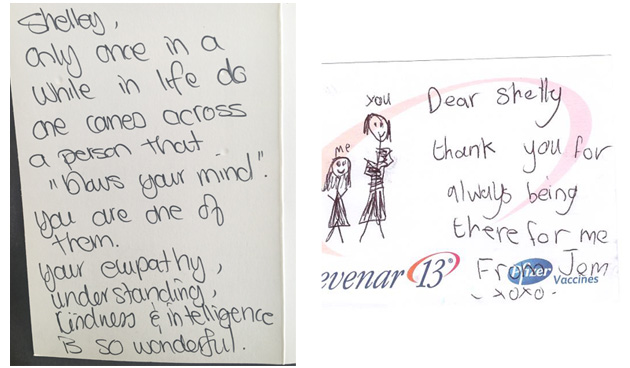 Shelley,
only once in a
while in life do
one comes across
a person that
"blows your mind".
you are one of
them.
your empathy,
understanding,
kindness & intelligence
is so wonderful.
you
me
Dear Shelly
thank you for
always being
there for me
From Jem
xoxo.
evenar 13®
Pfizer Vaccines